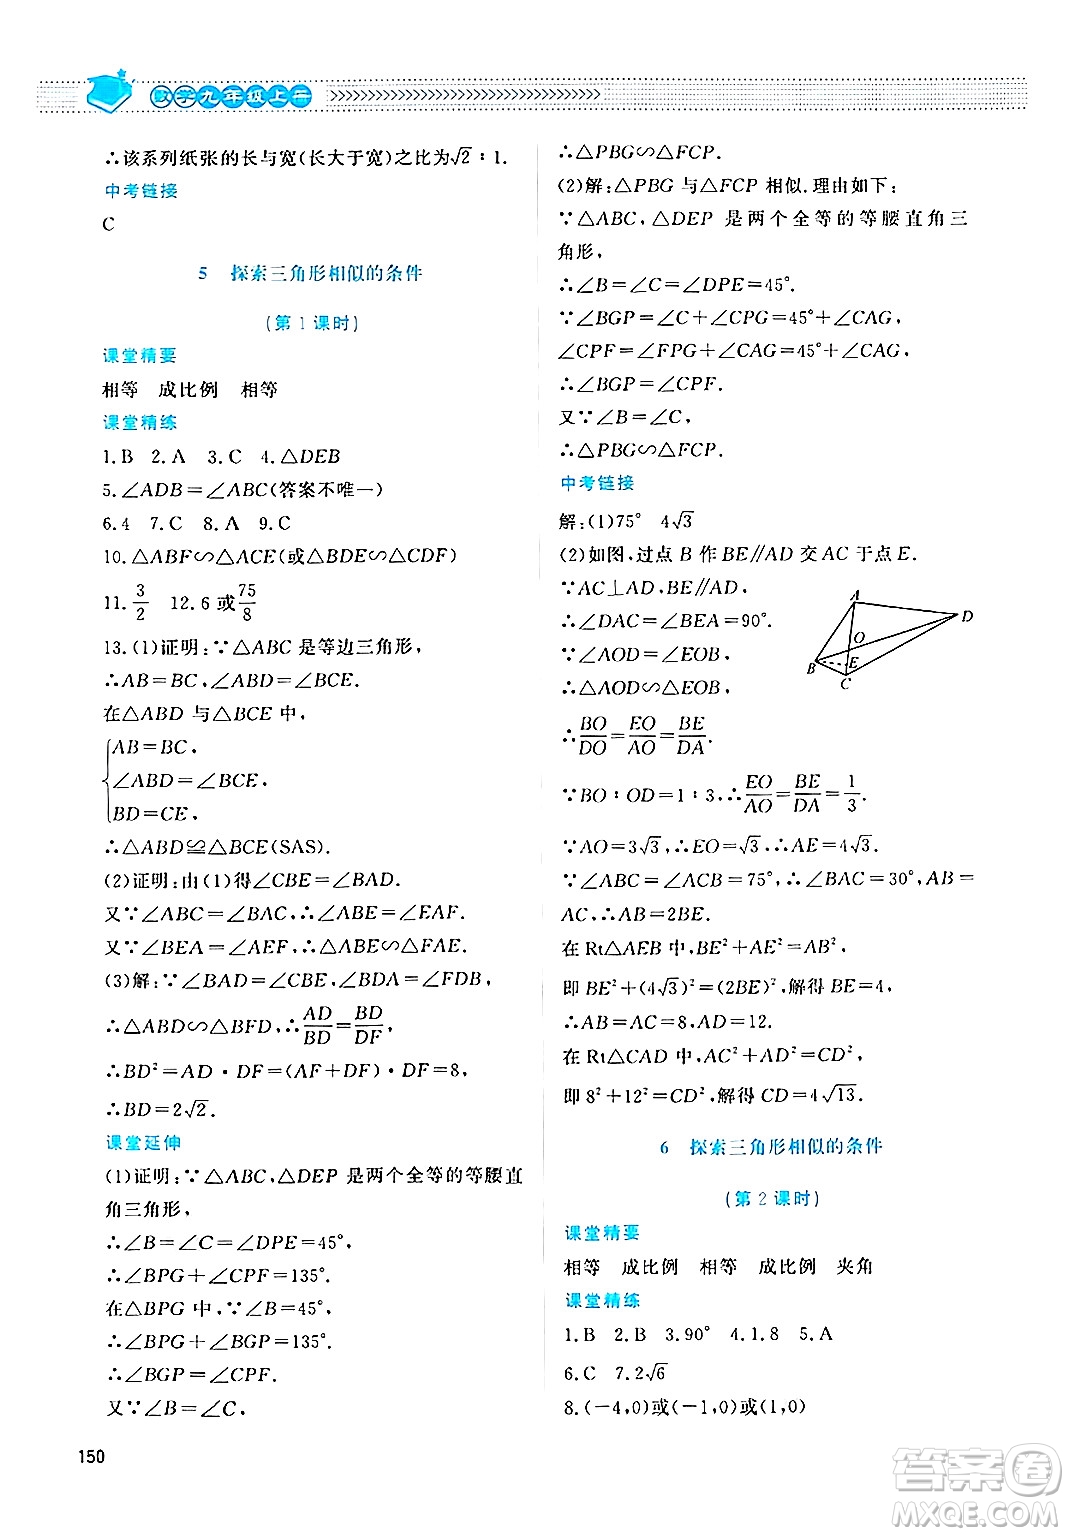 数学九年级上册
∴该系列纸张的长与宽(长大于宽)之比为√2∶1.
中考链接
C
5 探索三角形相似的条件
(第1课时)
课堂精要
相等 成比例 相等
课堂精练
1.B 2.A 3.C 4.△DEB
5.∠ADB=∠ABC(答案不唯一)
6.4 7.C 8.A 9.C
10.△ABF∽△ACE(或△BDE∽△CDF)
11.3/2 12.6或75/8
13.(1)证明:∵△ABC是等边三角形,
∴AB=BC,∠ABD=∠BCE.
在△ABD与△BCE中,
{AB=BC,
∠ABD=∠BCE,
BD=CE,
∴△ABD≌△BCE(SAS).
(2)证明:由(1)得∠CBE=∠BAD.
又∵∠ABC=∠BAC,∴∠ABE=∠EAF.
又∵∠BEA=∠AEF,∴△ABE∽△FAE.
(3)解:∵∠BAD=∠CBE,∠BDA=∠FDB,
∴△ABD∽△BFD,∴AD/BD=BD/DF,
∴BD²=AD·DF=(AF+DF)·DF=8,
∴BD=2√2.
课堂延伸
(1)证明:∵△ABC,△DEP是两个全等的等腰直
角三角形,
∴∠B=∠C=∠DPE=45°,
∴∠BPG+∠CPF=135°.
在△BPG中,∵∠B=45°,
∴∠BPG+∠BGP=135°,
∴∠BGP=∠CPF.
又∵∠B=∠C,
150
∴△PBG∽△FCP.
(2)解:△PBG与△FCP相似.理由如下:
∵△ABC,△DEP是两个全等的等腰直角三
角形,
∴∠B=∠C=∠DPE=45°.
∵∠BGP=∠C+∠CPG=45°+∠CAG,
∠CPF=∠FPG+∠CAG=45°+∠CAG,
∴∠BGP=∠CPF.
又∵∠B=∠C,
∴△PBG∽△FCP.
中考链接
解:(1)75° 4√3
(2)如图,过点B作BE∥AD交AC于点E.
∵AC⊥AD,BE∥AD,
∴∠DAC=∠BEA=90°.
∵∠AOD=∠EOB,
∴△AOD∽△EOB,
A
D
O
B
E
C
∴BO/DO=EO/AO=BE/DA.
∵BO∶OD=1∶3,∴EO/AO=BE/DA=1/3.
∵AO=3√3,∴EO=√3,∴AE=4√3.
∵∠ABC=∠ACB=75°,∴∠BAC=30°,AB=
AC,∴AB=2BE.
在Rt△AEB中,BE²+AE²=AB²,
即BE²+(4√3)²=(2BE)²,解得BE=4,
∴AB=AC=8,AD=12.
在Rt△CAD中,AC²+AD²=CD²,
即8²+12²=CD²,解得CD=4√13.
6 探索三角形相似的条件
(第2课时)
课堂精要
相等 成比例 相等 成比例 夹角
课堂精练
1.B 2.B 3.90° 4.1.8 5.A
6.C 7.2√6
8.(-4,0)或(-1,0)或(1,0)
答案卷
MXQE.COM